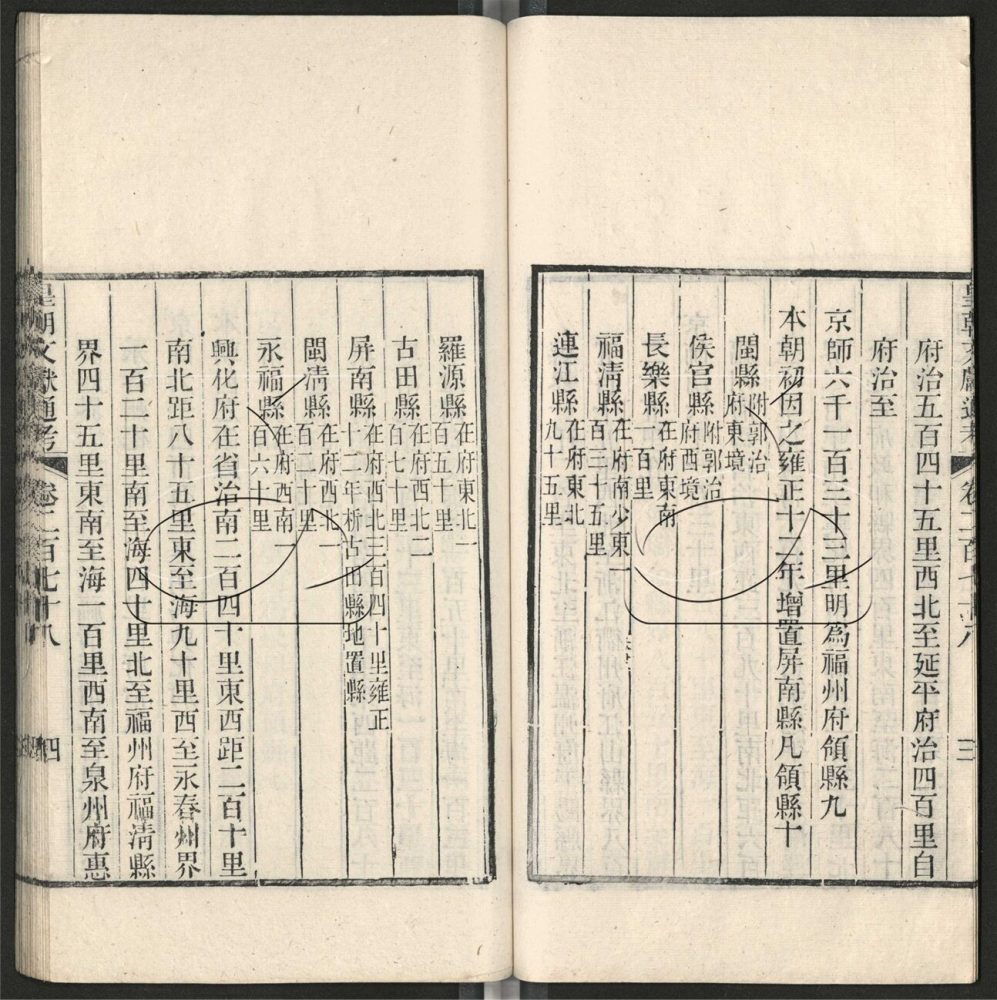 府治五百四十五里西北至延平府治四百里自
府治至
京師六千一百三十三里明為福州府領縣九
本朝初因之雍正十二年增置屏南縣凡領縣十
閩縣附郭治府東境
侯官縣附郭治府西境
長樂縣在府東南一百里
福清縣在府南少東一百三十五里
連江縣在府東北九十五里
羅源縣在府東北一百五十里
古田縣在府西北二百七十里
屏南縣在府西北三百四十里雍正十二年析古田縣地置縣
閩清縣在府西北一百二十里
永福縣在府西南一百六十里
興化府在省治南二百四十里東西距二百十里
南北距八十五里東至海九十里西至永春州界
一百二十里南至海四十里北至福州府福清縣
界四十五里東南至海一百里西南至泉州府惠
皇朝文獻通考
卷二百七十八
四